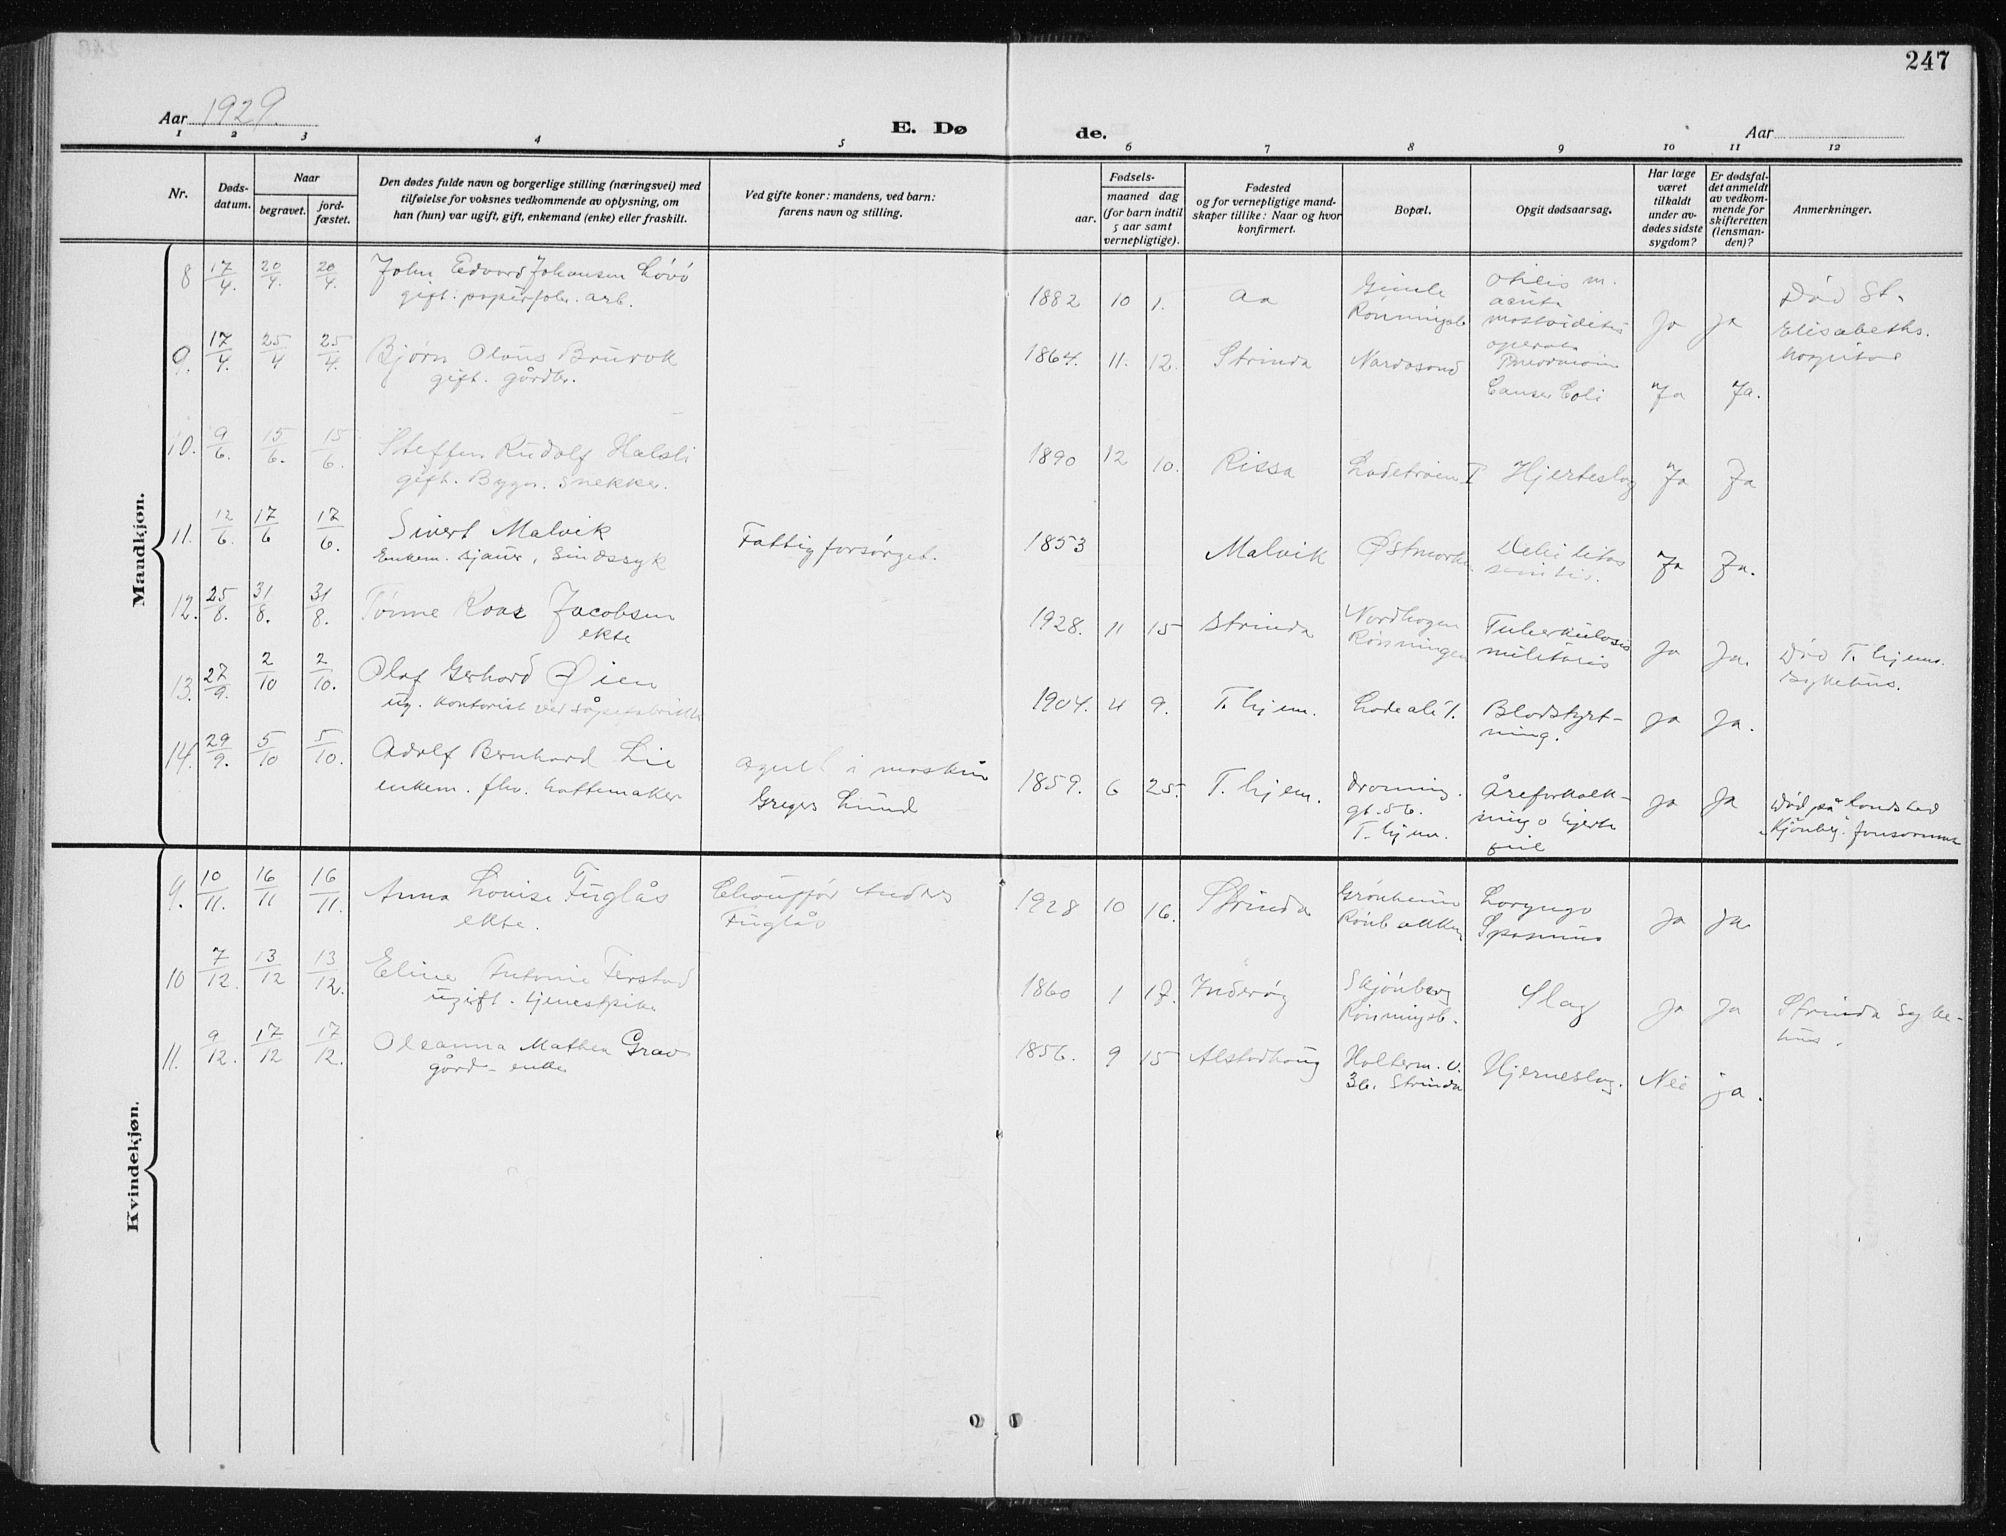 247
Aar 1929.
E. Dø de.
Aar
1 2 3 4 5 6 7 8 9 10 11 12
Nr.
Døds-
datum.
Naar
begravet.
jord-
fæstet.
Den dødes fulde navn og borgerlige stilling (næringsvei) med
tilføielse for voksnes vedkommende av oplysning, om
han (hun) var ugift, gift, enkemand (enke) eller fraskilt.
Ved gifte koner: mandens, ved barn:
farens navn og stilling.
Fødsels-
aar.
maaned dag
(for barn indtil
5 aar samt
vernepligtige).
Fødested
og for vernepligtige mand-
skaper tillike: Naar og hvor
konfirmert.
Bopæl.
Opgit dødsaarsag.
Har læge
været
tilkaldt
under av-
dødes sidste
sygdom?
Er dødsfal-
det anmeldt
av vedkom-
mende for
skifteretten
(lensman-
den)?
Anmerkninger.
Mandkjøn.
8 17/4. 20/4. 20/4. John Edvard Johansen Løvö
gift. papirfabr. arb.
1882 10 1. Aa
Gimle
Rönningsb.
otitis m.
acuta
mastoiditis
operat.
Ja ja
Död St.
Elisabeths.
hospital
9. 17/4. 25/4 25/4. Bjørn Olaus Bruvok
gift. gårdbr.
1864. 11. 12. Strinda
Pneumoni
Canser Coli
Ja Ja.
10. 9/6. 15/6. 15/6. Steffen Rudolf Halsli
gift. Bygn. snekker.
1890 12 10. Rissa Ladetrøen I Hjerteslag Ja Ja
11. 12/6. 17/6 17/6. Sivert Malvik
Enkem. sjauer, Sindssyk
Fattigforsørget.
1853 Malvik Østmarka
Ja Ja.
12. 25/8. 31/8. 31/8. Tönne Jacobsen
ekte
1928. 11 15 Strinda
Nordhogen
Rønningen
Tuberkulosis
miliaris
Ja Ja.
Död T. hjems.
Sykehus.
13. 27/9. 2/10 2/10. Olaf Gerhard Øien
ug. kontorist ved såpefabrikk
1904. 4 9. T. hjem. Lade alé
Blodstyrt-
ning.
Ja Ja.
14. 29/9. 5/10 5/10. Adolf Bernhard Lie
enkem. fhv. hattemaker
agent i maskin
Gregers Lund
1859. 6 25. T. hjem.
Dronning.
gt. 56.
T. hjem.
Åreforkalk-
ning o hjerte
feil
Ja Ja
Död på
Kvindekjøn.
9. 10/11. 16/11 16/11. Anna Lovise Fuglås
ekte.
Chauffør Anders
Fuglås
1928 10 16. Strinda
Grönheim
Rönb akken
Laryngo
Spasmus
Ja ja.
10 7/12. 13/12 13/12. Eline Antonie Ferstad
ugift. tjenestpike
1860 1 17. Inderöy
Skjönberg
Rönningsb.
Slag Ja Ja
Strinda syke-
hus.
11. 9/12. 17/12 17/12. Oleanna Mathea Grav
gårdb. enke
1856. 9 15 Alstadhoug
Holterm. v.
36. Strinda
Hjerneslag. Nei ja.